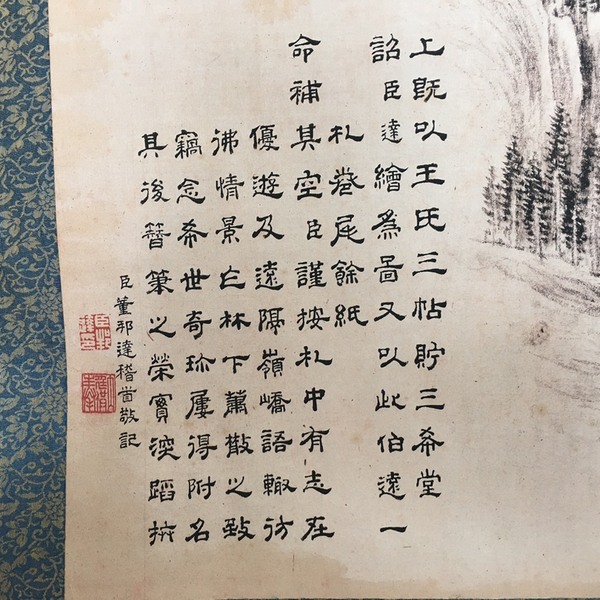 上既以王氏三帖貯三希堂
詔臣達繪為啚又以此伯遠一
札卷尾餘紙
命補其空臣謹按札中有志在
優遊及遠隔嶺嶠語輙彷
彿情景林下蕭散之致
竊念希世奇珍屢得附名
其後簪筆之榮實深蹈抃
臣董邦達稽首敬記